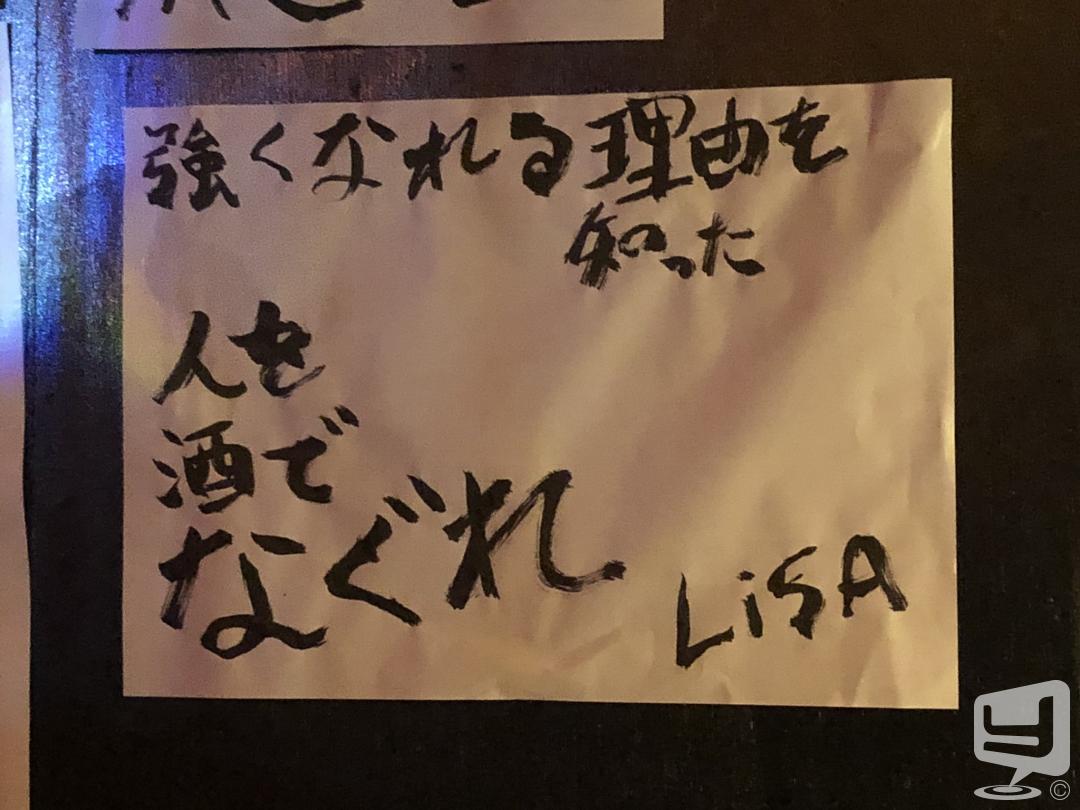 強くなれる理由を
知った
人を
酒で
なぐれ
LiSA